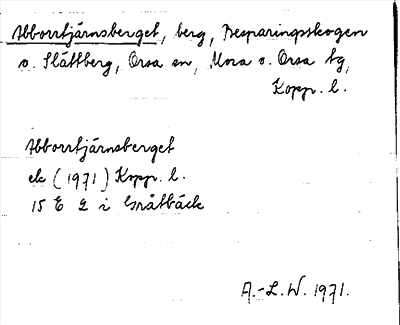 Abborrtjärnsberget, berg, Besparingsskogen
o. Slättberg, Orsa sn, Mora o. Orsa tg,
Kopp. l.
Abborrtjärnsberget
ek (1971) Kopp. l.
15 E 2 i Gråtbäck
A.-L.W. 1971.